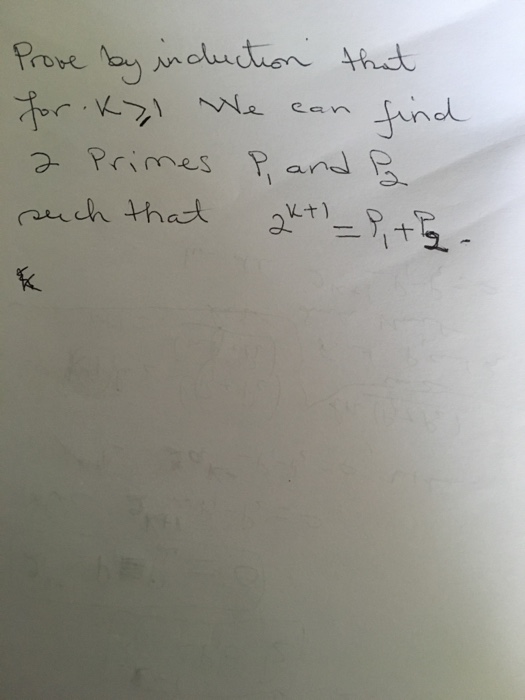 Prove by induction that
for K≥1 We can find
2 Primes P₁ and P₂
such that 2ᴷ⁺¹ = P₁+P₂.